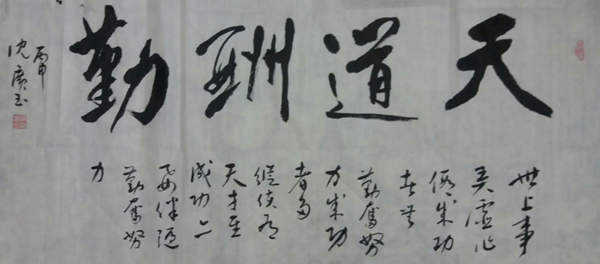 天道酬勤
世上事
弄虛作
假成功
者無
勤奮努
力成功
者多
縱使有
天才至
成功亦
要伴隨
勤奮努
力
丙申
沈廣玉